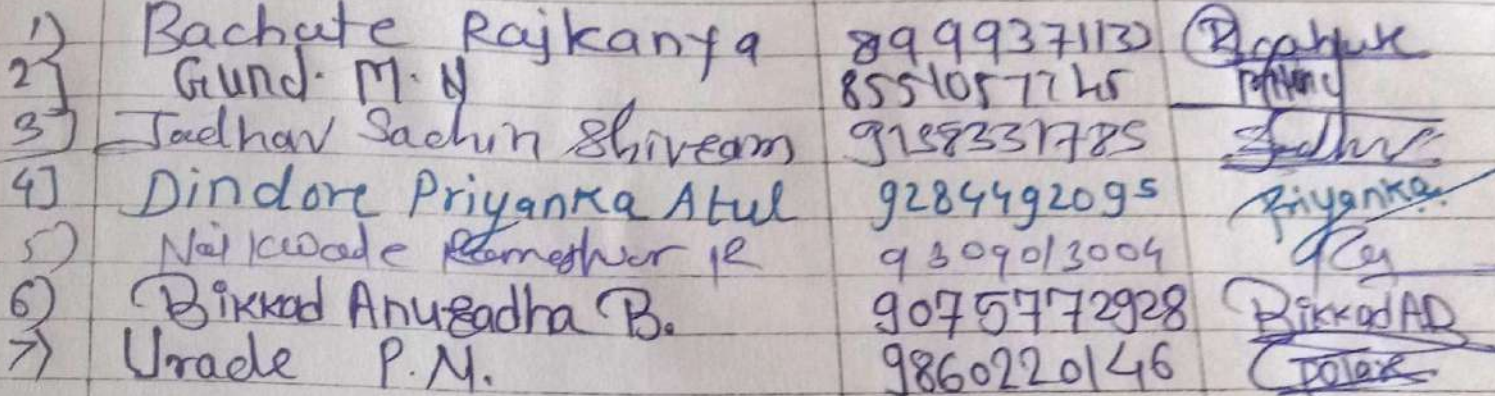 1) Bachate Rajkanya 8999371133
2] Gund. M. N 8551057745
3] Jadhav Sachin Shivram 9158331785
4] Dindore Priyanka Atul 9284492095 Priyanka
5) Naikwade Rameshwar R 9309013004
6) Bikkad Anuradha B. 9075772928 Bikkad AD
7) Urade P.M. 9860220146